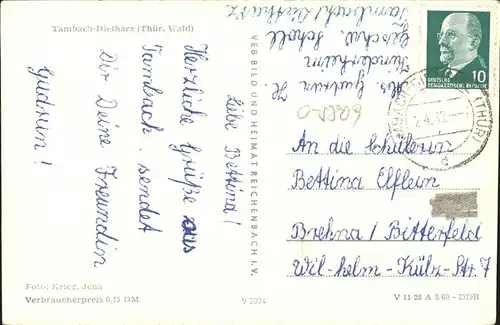 Tambach-Dietharz (Thür. Wald)
Liebe Bettina!
Herzliche Grüße aus
Tambach, sendet
Dir Deine Freundin
Gudrun!
Foto: Krieg, Jena
Verbraucherpreis 0,15 DM
VEB BILD UND HEIMAT REICHENBACH I. V.
V 11 28 A 3/60 - DDR
Abs. Gudrun H.
Kinderheim
Geschw. Scholl
Tambach/Dietharz
DEUTSCHE
DEMOKRATISCHE REPUBLIK
10
(THÜR)
An die Schülerin
Bettina Elflein
Brehna / Bitterfeld
Wilhelm-Külz-Str. 7